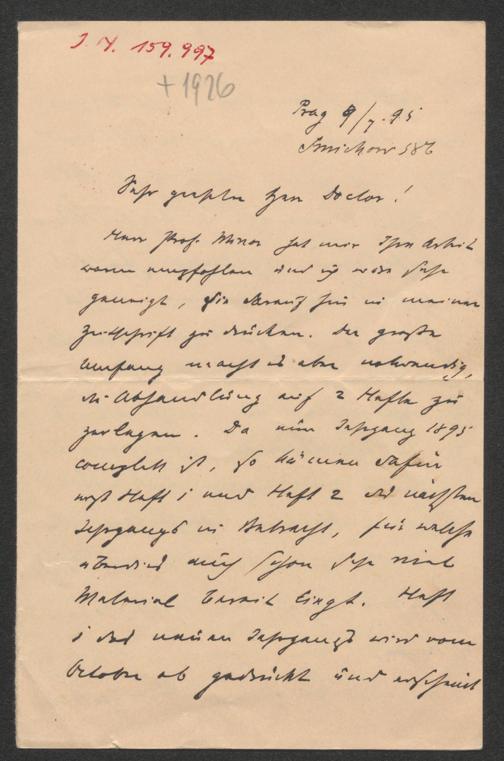 J. N. 159.997
+ 1926
Prag 9/7. 95
Smichow 586
Sehr geehrter Herr Doctor!
Herr Prof. Minor hat mir Ihre Arbeit
warm empfohlen und ich wäre sehr
geneigt, sie darauf hin in meiner
Zeitschrift zu drucken. Der große
Umfang macht es aber notwendig,
die Abhandlung auf 2 Hefte zu
zerlegen. Da nun Jahrgang 1895
complett ist, so können dafür
erst Heft 1 und Heft 2 des nächsten
Jahrgangs in Betracht, für welche
überdies auch schon sehr viel
Material bereit liegt. Heft
1 des neuen Jahrgangs wird vom
October ab gedruckt und erscheint